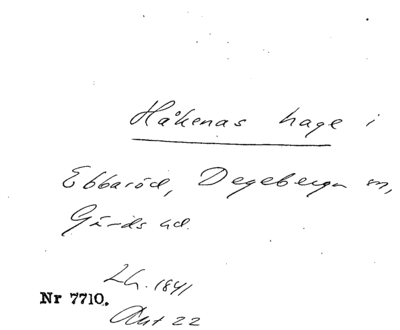 Håkenas hage i
Ebbaröd, Degeberga sn,
Gärds hd.
Lh. 1841
Nr 7710.
Akt 22